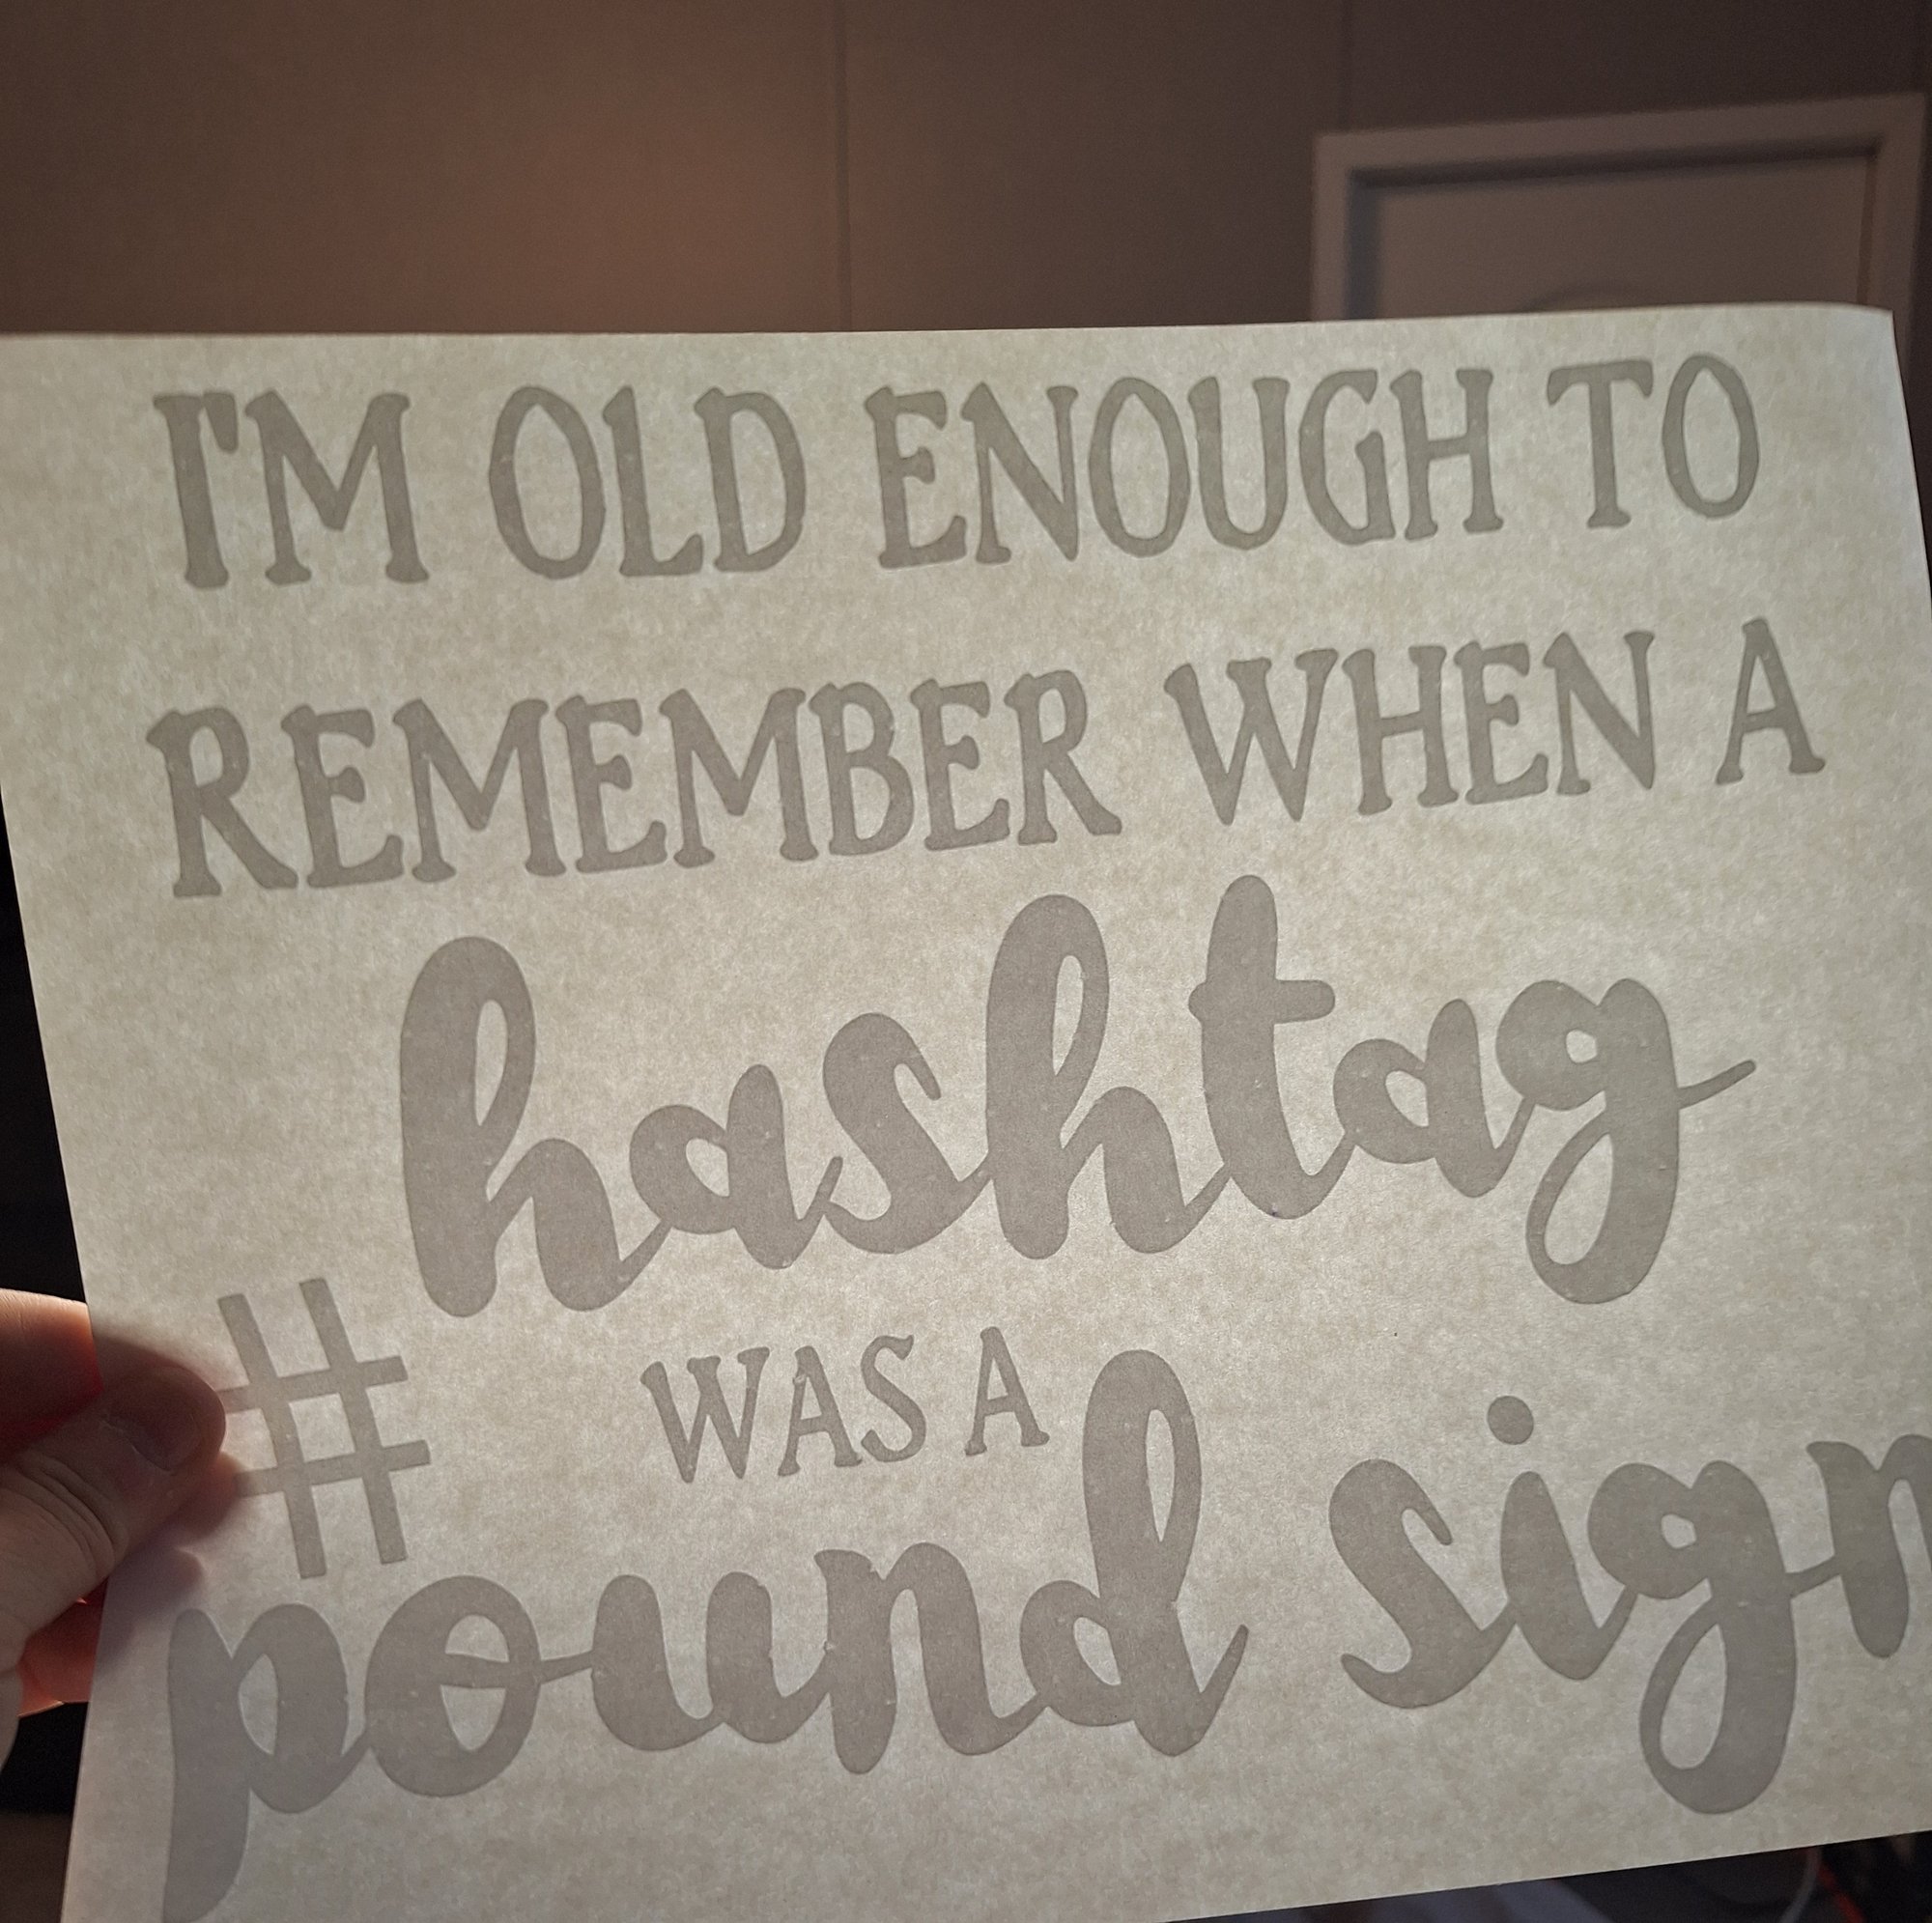 I'M OLD ENOUGH TO
REMEMBER WHEN A
hashtag
#
WAS A
pound sign